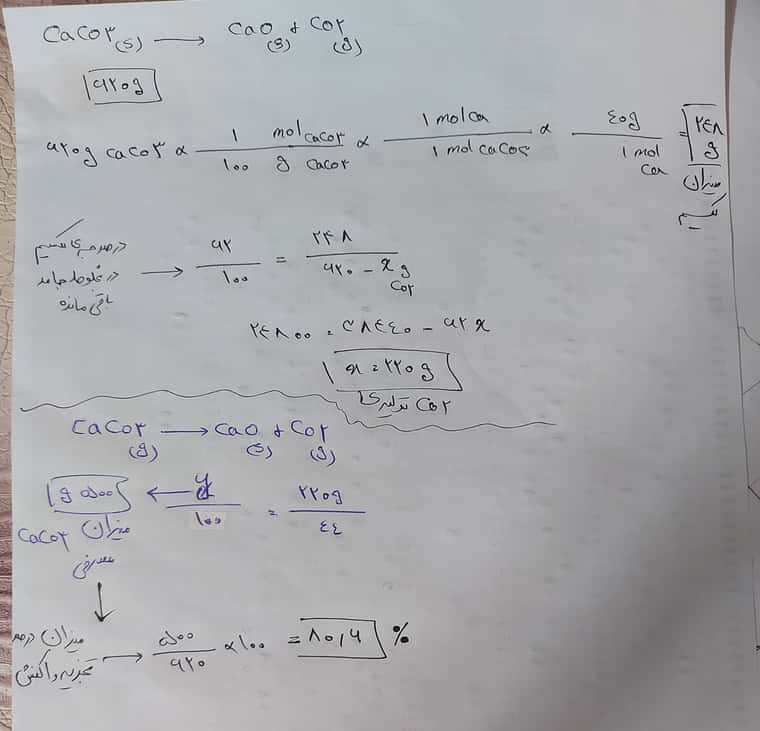 CaCO۳(s) → CaO(s) + CO۲(g)
۶۲۰g
۶۲۰g CaCO۳ × ۱ mol CaCO۳ / ۱۰۰ g CaCO۳ × ۱ mol Ca / ۱ mol CaCO۳ × ٤٠g / ۱ mol Ca = ۲٤۸ g
میزان کلسیم
درصد جرمی کلسیم در مخلوط جامد باقی مانده → ۶۲ / ۱۰۰ = ۲۴۸ / ۶۲۰ - x g CO۲
۲٤۸۰۰ = ۳۸٤٤۰ - ۶۲x
x = ۲۲۰g
CO۲ تولیدی
CaCO۳(g) → CaO(s) + CO۲(g)
۵۰۰ g ← y / ۱۰۰ = ۲۲۰g / ٤٤
میزان CaCO۳ مصرفی
میزان درصد تجزیه واکنش → ۵۰۰ / ۶۲۰ × ۱۰۰ = ۸۰,۶ %